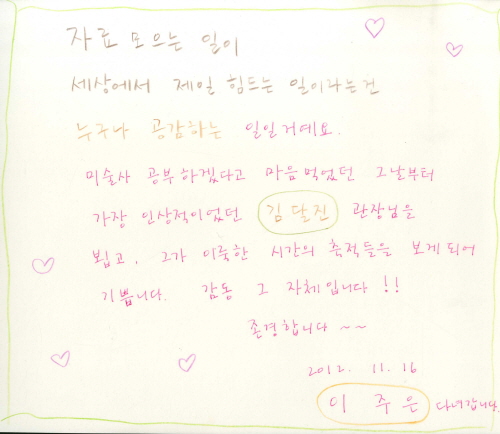 자료 모으는 일이
세상에서 제일 힘드는 일이라는건
누구나 공감하는 일일거예요.
미술사 공부하겠다고 마음먹었던 그날부터
가장 인상적이었던 김달진 관장님을
뵙고, 그가 이룩한 시간의 축적들을 보게되어
기쁩니다. 감동 그 자체입니다 !!
존경합니다 ~~
2012. 11. 16
이 주 은 다녀갑니다.